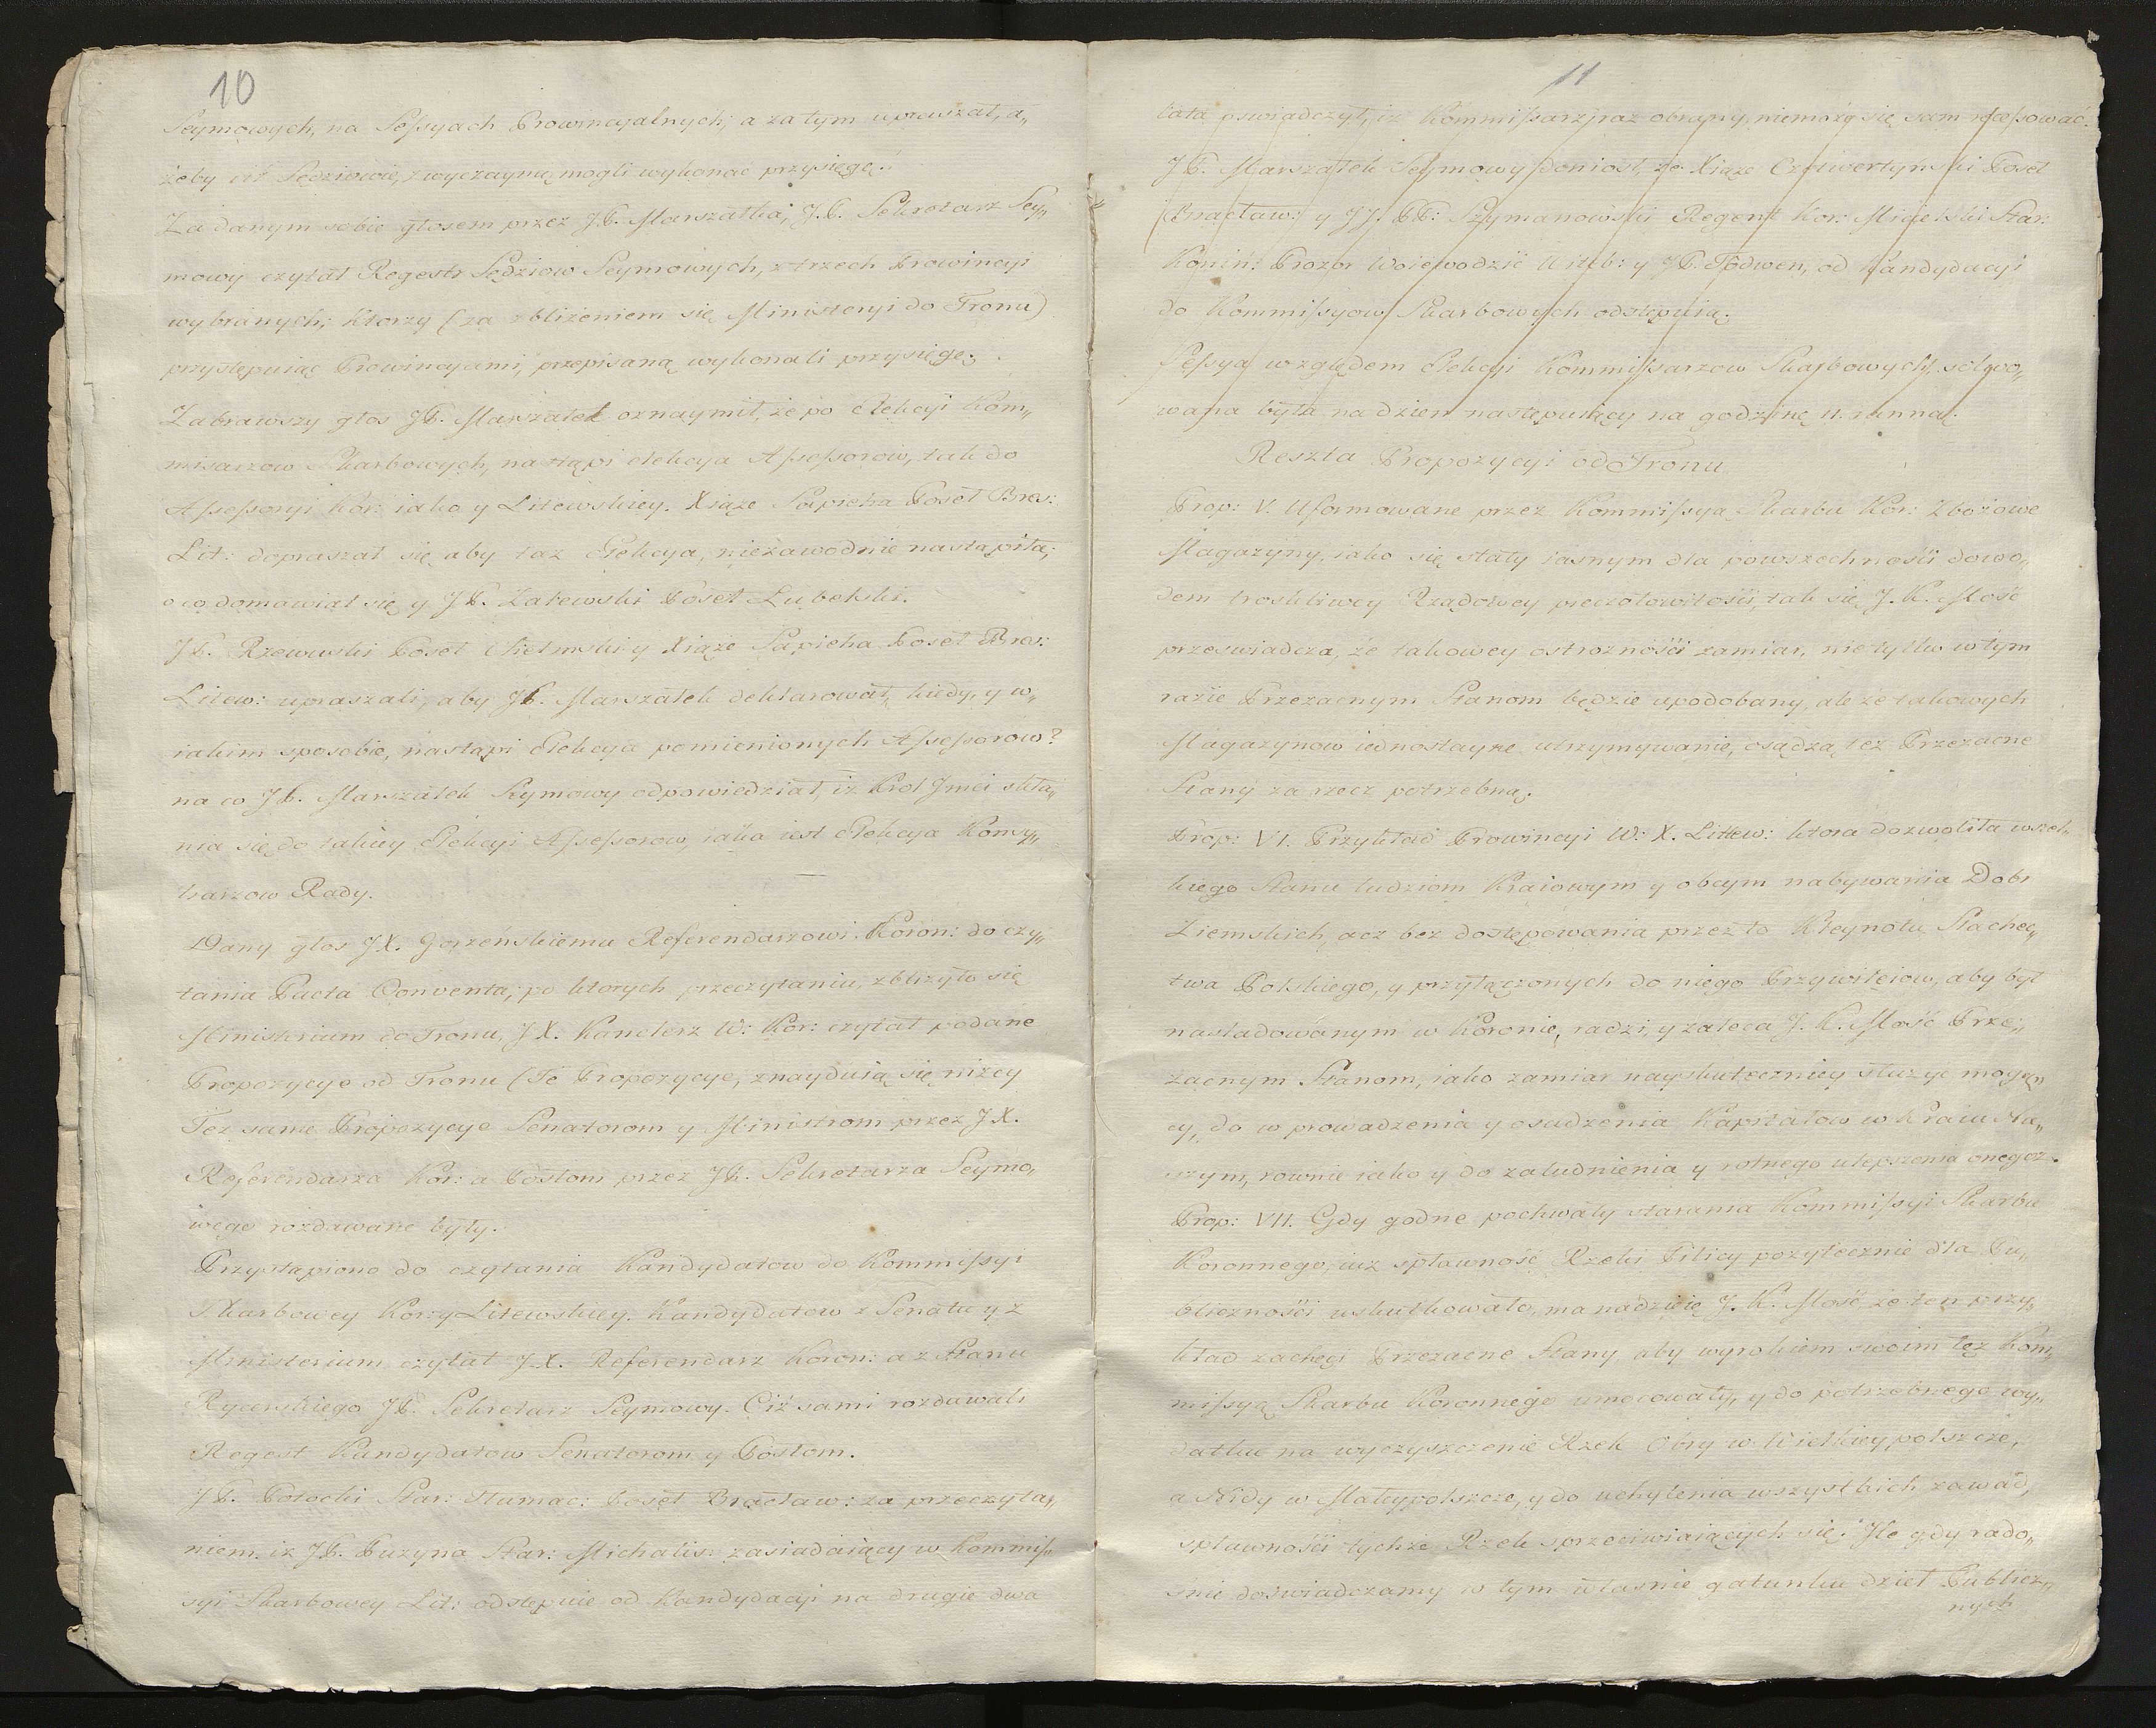 10
Seymowych, na Sessyach Prowincyalnych; a zatym upraszał, a„
żeby ciż Sędziowie, zwyczayną mogli wykonać przysięgę.
Za danym sobie głosem przez JP. Marszałka, J.P. Sekretarz Sey„
mowy czytał Regestr Sędziow Seymowych, z trzech Prowincyi
wybranych; ktorzy (za zbliżeniem się Ministeryi do Tronu)
przystępuiąc Prowincyami, przepisaną wykonali przysięgę.
Zabrawszy głos JP. Marszałek oznaymił, że po elekcyi Kom„
misarzow Skarbowych, nastąpi elekcya Assessorow, tak do
Assessoryi Kor: iako y Litewskiey. Xiąże Sapieha Poseł Bres:
Lit: dopraszał się aby taz Elekcya, niezawodnie nastąpiła;
o co domawiał się y JP. Zalewski Poseł Lubelski.
JP. Rzewuski Poseł y Xiąże Sapieha Poseł Bres:
Litew: upraszali, aby JP. Marszałek deklarował, kiedy, y w„
iakim sposobie, nastąpi Elekcya pomienionych Assessorow?
na co JP. Marszałek Seymowy odpowiedział, iż Krol Jmci skła„
nia się do takiey Elekcyi Assessorow, iaka iest Elekcya Konsy„
liarzow Rady.
Dany głos JX. Gorzeńskiemu Referendarzowi Koron: do czy„
tania Pacta Conventa; po ktorych przeczytaniu, zbliżyło się
Ministerium do Tronu, JX. Kanclerz W: Kor: czytał podane
Propozycye od Tronu (Te Propozycye, znayduią się niżey
Też same Propozycye Senatorom y Ministrom przez JX.
Referendarza Kor: a Posłom przez JP. Sekretarza Seymo„
wego rozdawane były.
Przystąpiono do czytania Kandydatow do Kommissyi
Skarbowey Kor: y Litewskiey. Kandydatow z Senatu y z
Ministerium czytał JX. Referendarz Koron: a z Stanu
Rycerskiego JP. Sekretarz Seymowy. Ciż sami rozdawali
Regest Kandydatow Senatorom y Posłom.
JP. Potocki Star: Tłumac: Poseł Bracław: za przeczyta„
niem iż JP. Puzyna Star: zasiadaiący w Kommis„
syi Skarbowey Lit: odstępuie od Kandydacyi na drugie dwa
11
lata oswiadczył, iż Kommissarz raz obrany, niemoże się sam
JP. Marszałek Seymowy doniosł, że Xiąże Czetwertyński Poseł
Bracław: y JJ. PP: Szymanowski Regent Kor: Mielski Star:
Konin: Prozor Woiewodzic Witeb: y JP. od Kandydacyi
do Kommissyow Skarbowych odstępuią.
Sessya względem elekcyi Kommissarzow Skarbowych, solwo„
wana była na dzien następuiący na godzinę 11. ranną.
Reszta Propozycyi od Tronu
Prop: V. Uformowane przez Kommissyą Skarbu Kor: Zbożowe
Magazyny, iako się stały iasnym dla powszechności dowo„
dem troskliwey Rządowey pieczołowitości, tak się J.K. Mość
przeswiadcza, że takowey ostrożności zamiar, nie tylko w tym
razie Przezacnym Stanom będzie upodobany, ale że takowych
Magazynow iednostayne utrzymywanie, osądzą też Przezacne
Stany za rzecz potrzebną.
Prop: VI. Przykład Prowincyi W: X. Littew: ktora dozwoliła wszel„
kiego Stanu ludziom Kraiowym y obcym nabywania Dobr
Ziemskich, acz bez dostępowania przez to Kleynotu Szlachec„
twa Polskiego, y przyłączonych do niego Przywileiow, aby był
nasladowanym w Koronie, radzi, y zaleca J. K. Mość Prze„
zacnym Stanom, iako zamiar nayskuteczniey służyc mogą„
cy, do wprowadzenia y osadzenia Kapitałow w Kraiu Na„
szym, rownie iako y do zaludnienia y rolnego ulepszenia onegoż.
Prop: VII. Gdy godne pochwały starania Kommissyi Skarbu
Koronnego, iuż spławność Rzeki Pilicy pożytecznie dla Pu„
bliczności uskutkowało, ma nadzieię J. K. Mość że ten przy„
kład zachęci Przezacne Stany, aby wyrokiem swoim też Kom„
missyą Skarbu Koronnego umocowały, y do potrzebnego wy„
datku na wyczyszczenie Rzek Obry w Wielkieypolszcze,
a Nidy w Małeypolszcze, y do uchylenia wszystkich zawad,
spławności tychże Rzek sprzeciwiaiących się. Ile gdy rado„
śnie doświadczamy w tym własnie gatunku dzieł Publicz„
nych